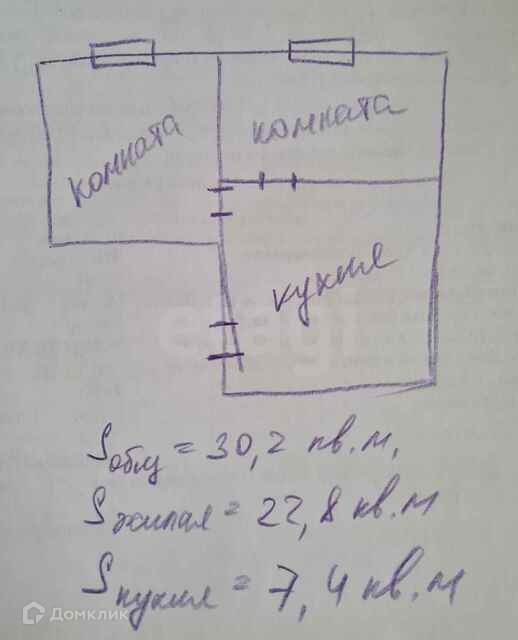 комната
комната
кухня
Sобщ = 30,2 кв.м.
Sжилая = 22,8 кв.м
Sкухня = 7,4 кв.м
Домклик